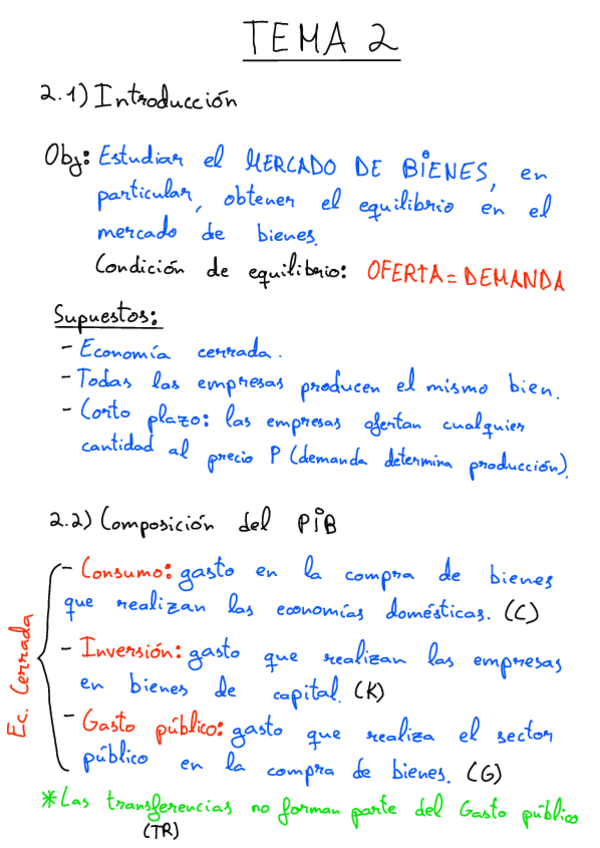 TEMA 2
2.1) Introducción
Obj: Estudiar el MERCADO DE BIENES, en
particular, obtener el equilibrio en el
mercado de bienes.
Condición de equilibrio: OFERTA = DEMANDA
Supuestos:
- Economía cerrada.
- Todas las empresas producen el mismo bien.
- Corto plazo: las empresas ofertan cualquier
cantidad al precio P (demanda determina producción).
2.2) Composición del PIB
Ec. Cerrada
- Consumo: gasto en la compra de bienes
que realizan las economías domésticas. (C)
- Inversión: gasto que realizan las empresas
en bienes de capital. (K)
- Gasto público: gasto que realiza el sector
público en la compra de bienes. (G)
*Las transferencias no forman parte del Gasto público
(TR)